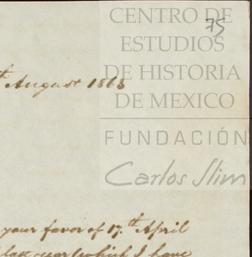 CENTRO DE
75
ESTUDIOS
DE HISTORIA
DE MEXICO
FUNDACIÓN
Carlos Slim
th August 1868
your favor of 17.th April
last year which I have